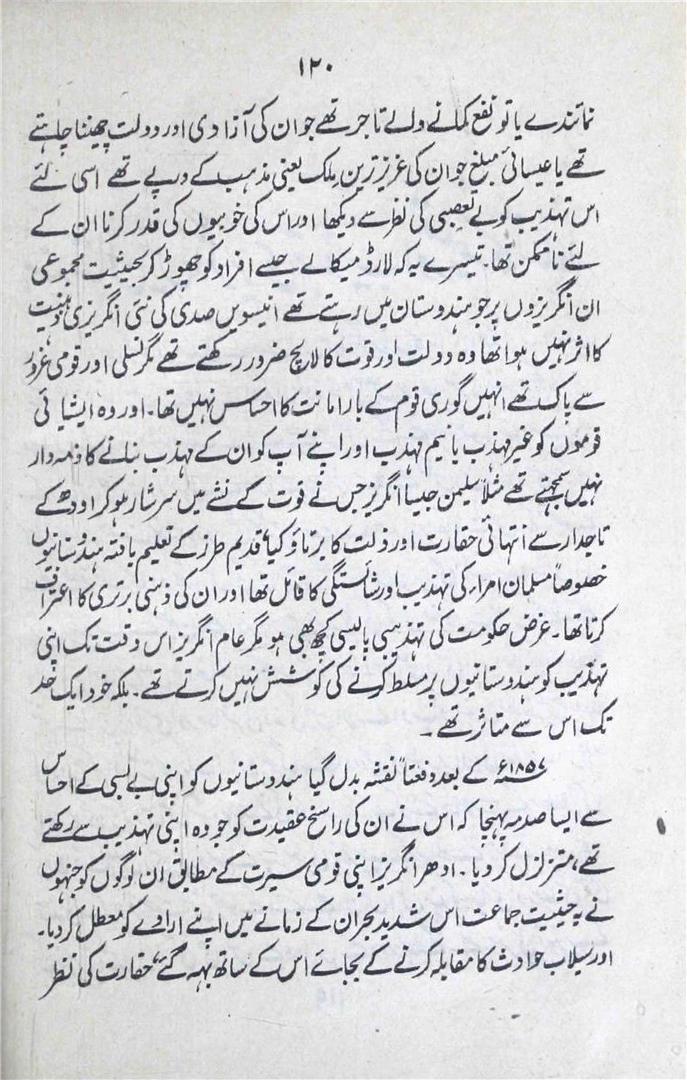 ۱۲۰
نمائندے یا تو نفع کمانے والے تاجر تھے جو ان کی آزادی اور دولت چھیننا چاہتے
تھے یا عیسائی مبلغ جو ان کی عزیز ترین ملک یعنی مذہب کے درپے تھے اسی لئے
اس تہذیب کو بے تعصبی کی نظر سے دیکھا اور اس کی خوبیوں کی قدر کرنا ان کے
لئے ناممکن تھا۔ تیسرے یہ کہ لارڈ میکالے جیسے افراد کو چھوڑ کر بحیثیت مجموعی
ان انگریزوں پر جو ہندوستان میں رہتے تھے انیسویں صدی کی نئی انگریزی ذہنیت
کا اثر نہیں ہوا تھا وہ دولت اور قوت کا لالچ ضرور رکھتے تھے مگر نسلی اور قومی غرور
سے پاک تھے انہیں گوری قوم کے بار امانت کا احساس نہیں تھا۔ اور وہ ایشیائی
قوموں کو غیر مہذب یا نیم مہذب اور اپنے آپ کو ان کے مہذب بنانے کا ذمہ دار
نہیں سمجھتے تھے مثلاً سلیمن جیسا انگریز جس نے قوت کے نشے میں سرشار ہو کر اودھ کے
تاجدار سے انتہائی حقارت اور ذلت کا برتاؤ کیا، قدیم طرز کے تعلیم یافتہ ہندوستانیوں
خصوصاً مسلمان امراء کی تہذیب اور شائستگی کا قائل تھا اور ان کی ذہنی برتری کا اعتراف
کرتا تھا۔ غرض حکومت کی تہذیبی پالیسی کچھ بھی ہو مگر عام انگریز اس وقت تک اپنی
تہذیب کو ہندوستانیوں پر مسلط کرنے کی کوشش نہیں کرتے تھے۔ بلکہ خود ایک حد
تک اس سے متاثر تھے۔
۱۸۵۷ء کے بعد دفعتاً نقشہ بدل گیا ہندوستانیوں کو اپنی بے بسی کے احساس
سے ایسا صدمہ پہنچا کہ اس نے ان کی راسخ عقیدت کو جو وہ اپنی تہذیب سے رکھتے
تھے، متزلزل کر دیا۔ ادھر انگریز اپنی قومی سیرت کے مطابق ان لوگوں کو جنہوں
نے بہ حیثیت جماعت اس شدید بحران کے زمانے میں اپنے ارادے کو معطل کر دیا۔
اور سیلاب حوادث کا مقابلہ کرنے کے بجائے اس کے ساتھ بہہ گئے، حقارت کی نظر